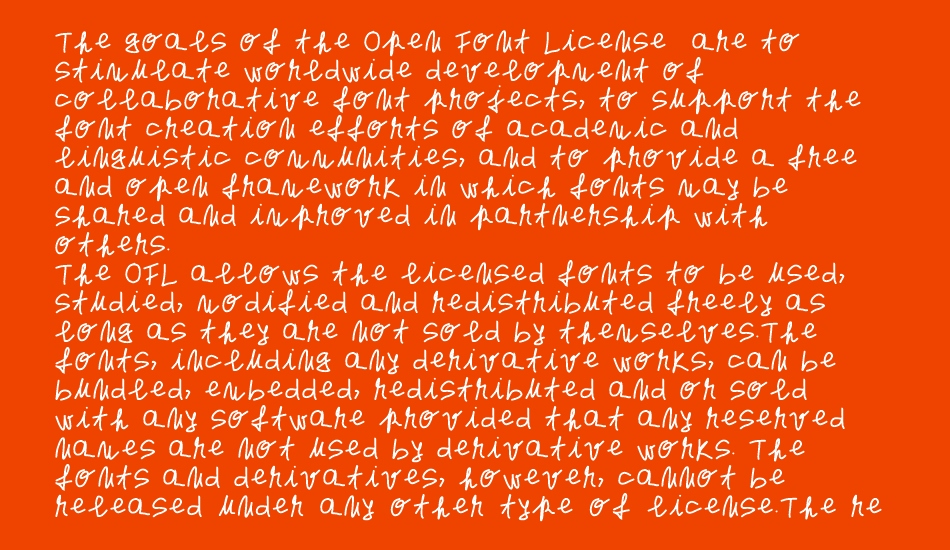 The goals of the Open Font License are to
stimulate worldwide development of
collaborative font projects, to support the
font creation efforts of academic and
linguistic communities, and to provide a free
and open framework in which fonts may be
shared and improved in partnership with
others.
The OFL allows the licensed fonts to be used,
studied, modified and redistributed freely as
long as they are not sold by themselves.The
fonts, including any derivative works, can be
bundled, embedded, redistributed and or sold
with any software provided that any reserved
names are not used by derivative works. The
fonts and derivatives, however, cannot be
released under any other type of license.The re